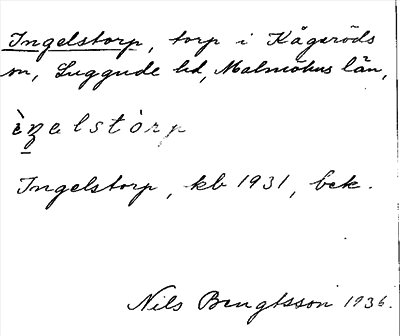 Ingelstorp, torp i Kågeröds
sn, Luggude hd, Malmöhus län,
Ingelstorp, kb 1931, bek.
Nils Bengtsson 1936.